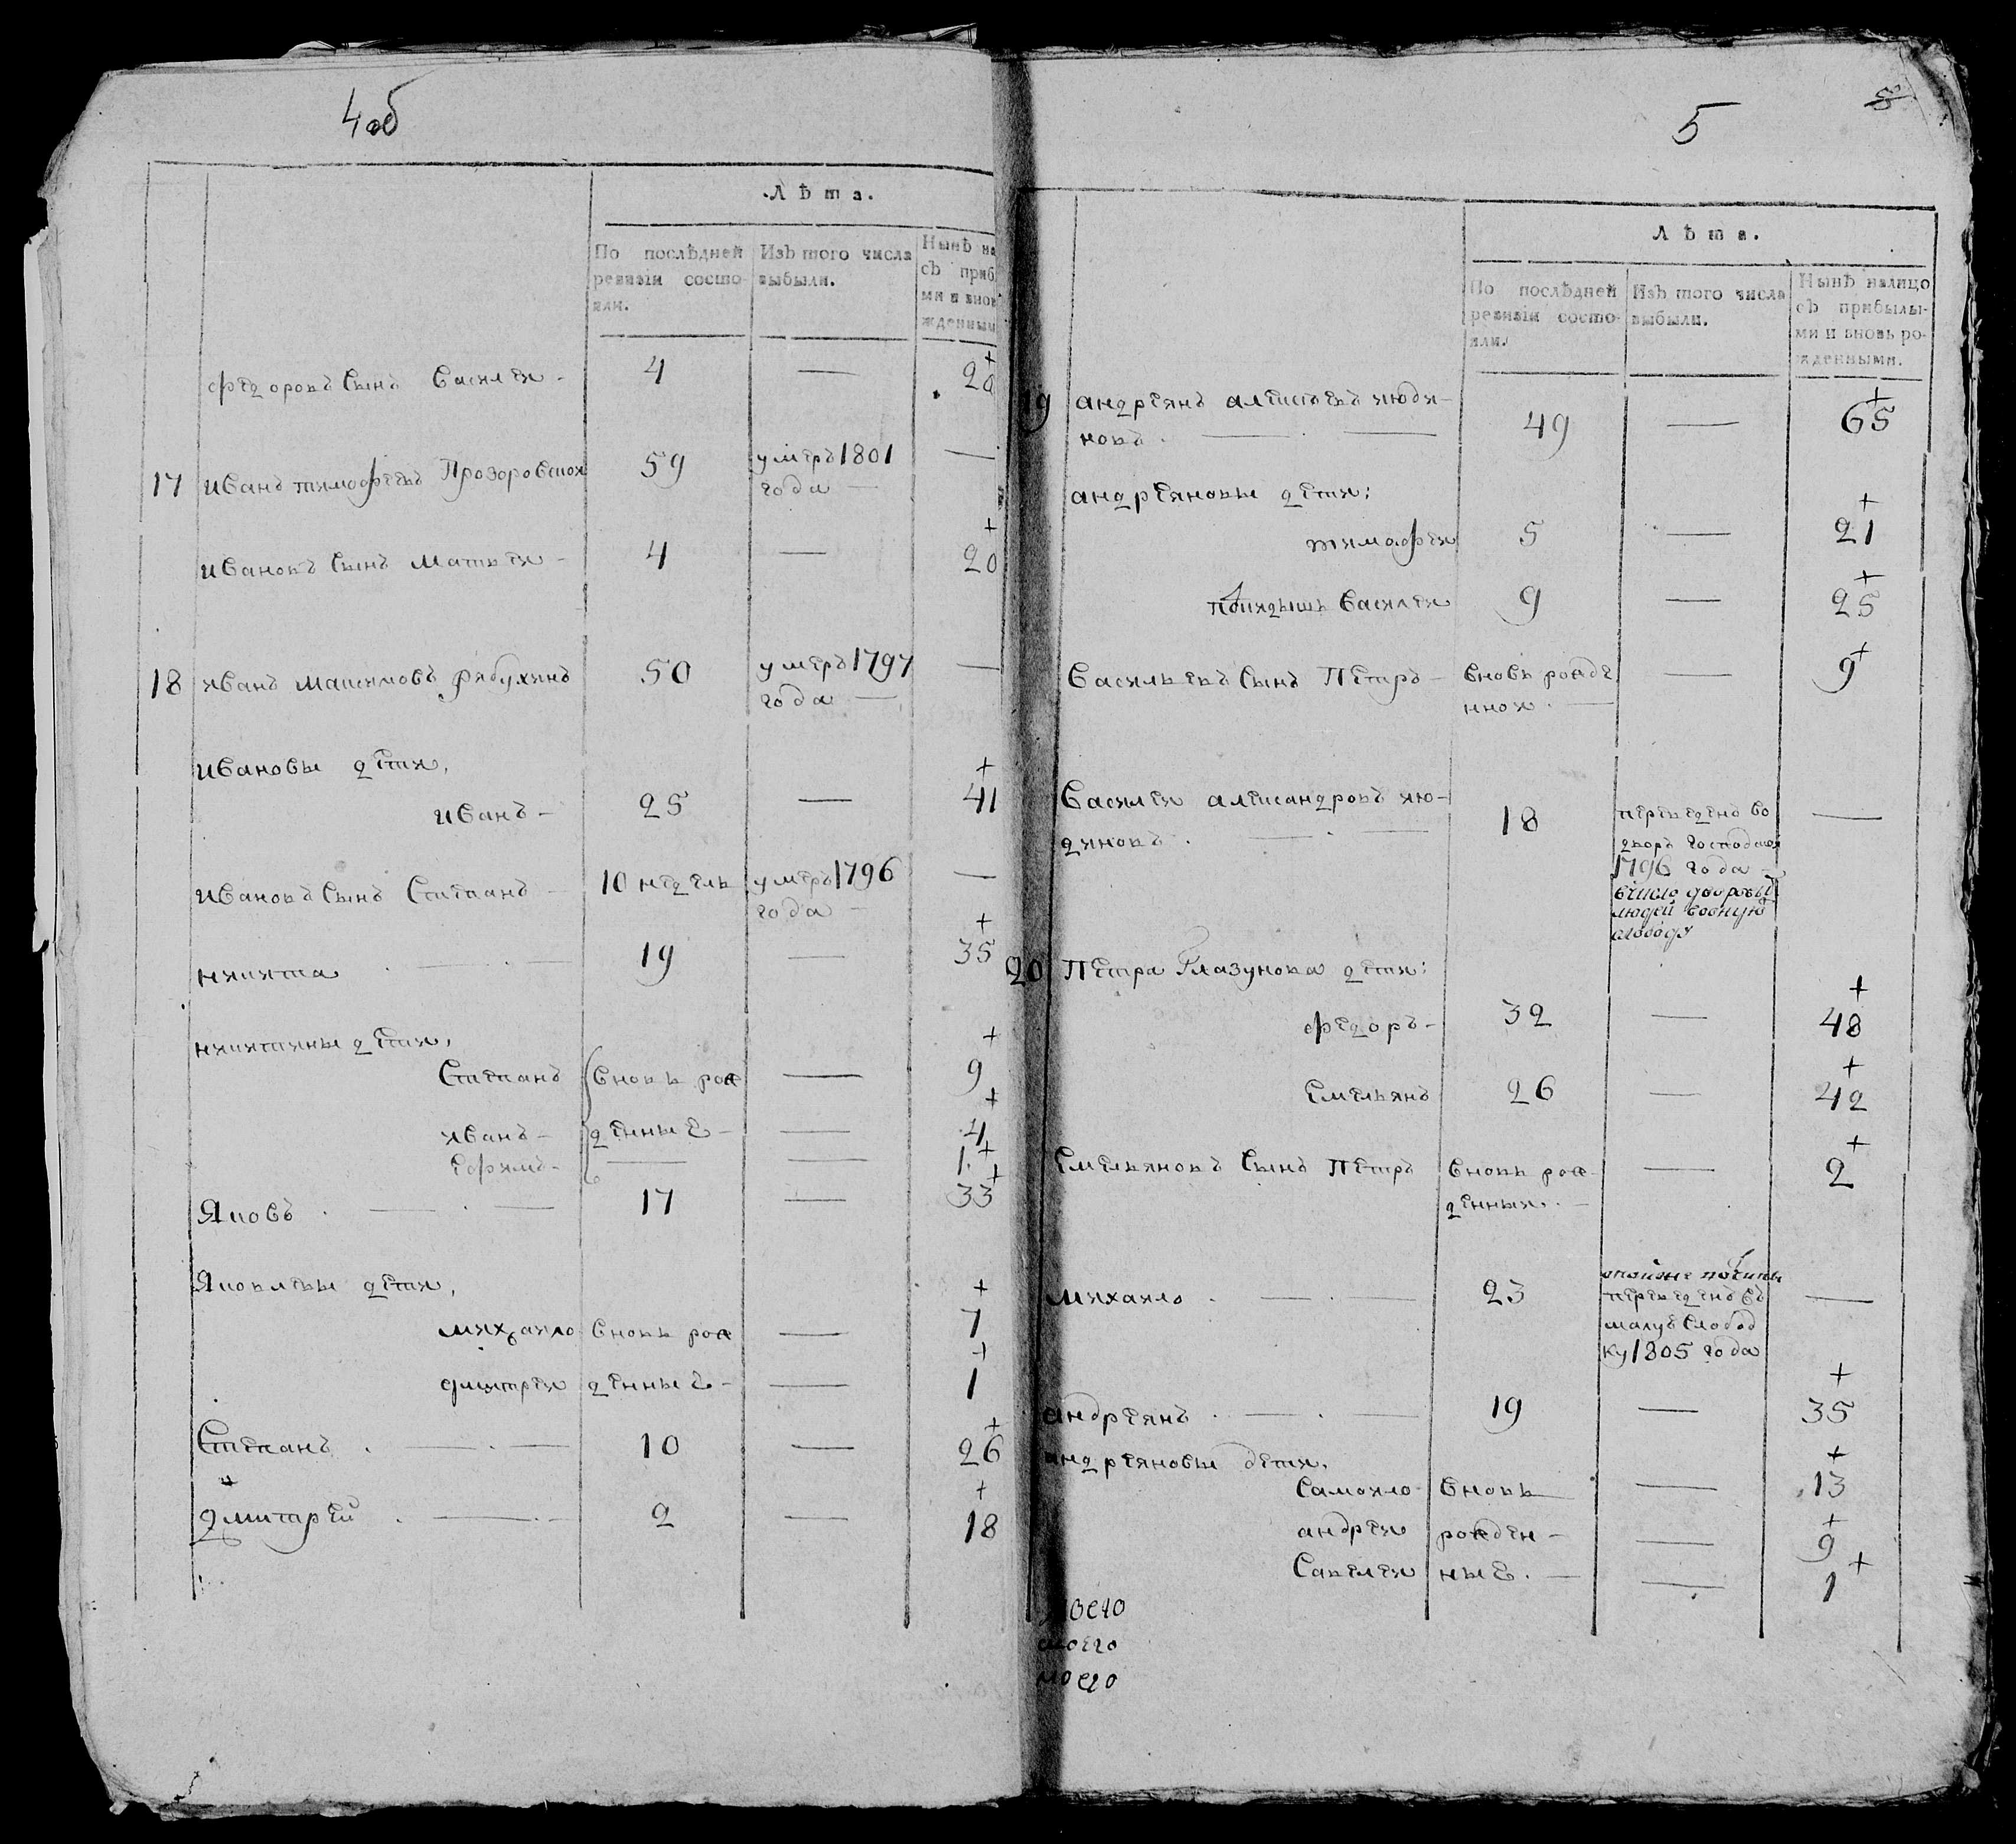 4 об
Лѣта.
По послѣдней
ревизіи состо-
яли.
Изъ того числа
выбыли.
Нынѣ на
съ приб
ми и внов
жденными
+
Федоровъ сынъ Василеи - 4 — 20
17 Иванъ тимофеевъ Прозоровскои 59 умеръ 1801
года — —
+
Ивановъ сынъ Матвеи - 4 — 20
18 иванъ Максимовъ рябухинъ 50 умеръ 1797
года — —
Ивановы дети,
+
Иванъ - 25 — 41
Ивановъ сынъ Степанъ - 10 недель умеръ 1796
года — —
+
никита . — . — 19 — 35
никитины дети,
+
Степанъ вновь рож — 9
+
иванъ - денные - — 4
+
ефимъ - — — 1
+
Яковъ . — . — 17 — 33
Яковлевы дети,
+
михаило вновь рож — 7
+
дмитреи денные - — 1
+
Степанъ . — . — 10 — 26
+
Дмитрей . — . - 2 — 18
5
Лѣта.
По послѣдней
ревизіи состо-
яли.
Изъ того числа
выбыли.
Нынѣ налицо
съ прибылы-
ми и вновь ро-
жденными.
+
19 андреянъ алексеевъ июди-
новъ . — . — 49 — 65
андреяновы дети:
+
тимафеи 5 — 21
+
Василеи 9 — 25
+
Васильевъ сынъ Петръ - вновь рожде — 9
нной . —
Василеи александровъ ию-
диновъ . — . — 18 переведенъ во —
дворъ господской
1796 года -
вчисло дворовых
людей
слободу
20 Петра Глазунова дети:
+
федоръ - 32 — 48
+
емельянъ 26 — 42
+
Емельяновъ сынъ Петръ вновь рож- — 2
денный . -
михаило . — . — 23
переведенъ въ —
малую слобод
ку 1805 года
+
андреянъ . — . — 19 — 35
андреяновы дети,
+
Самоило вновь — 13
+
андреи рожден - — 9
+
Савелеи ные . — — 1
моего
моего
моего